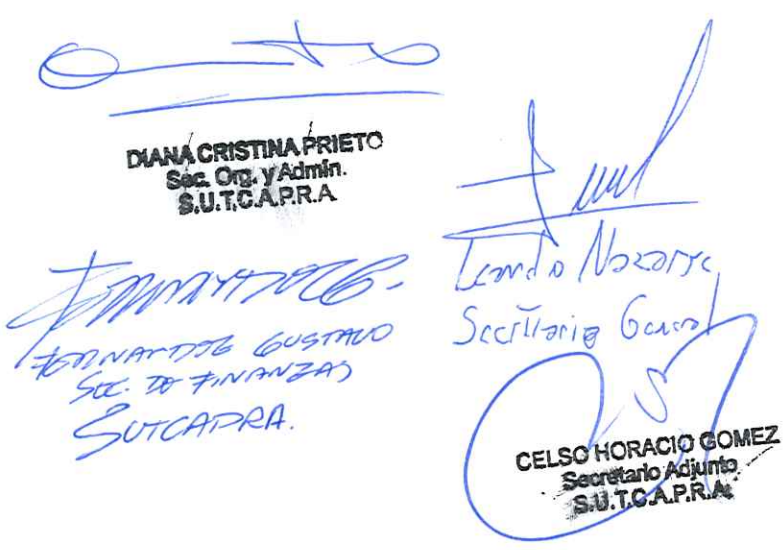 DIANA CRISTINA PRIETO
Sec. Org. y Admin.
S.U.T.C.A.P.R.A
GUSTAVO
SEC. DE FINANZAS
SUTCAPRA.
Leandro Nazarre
Secretario General
CELSO HORACIO GOMEZ
Secretario Adjunto
S.U.T.C.A.P.R.A.